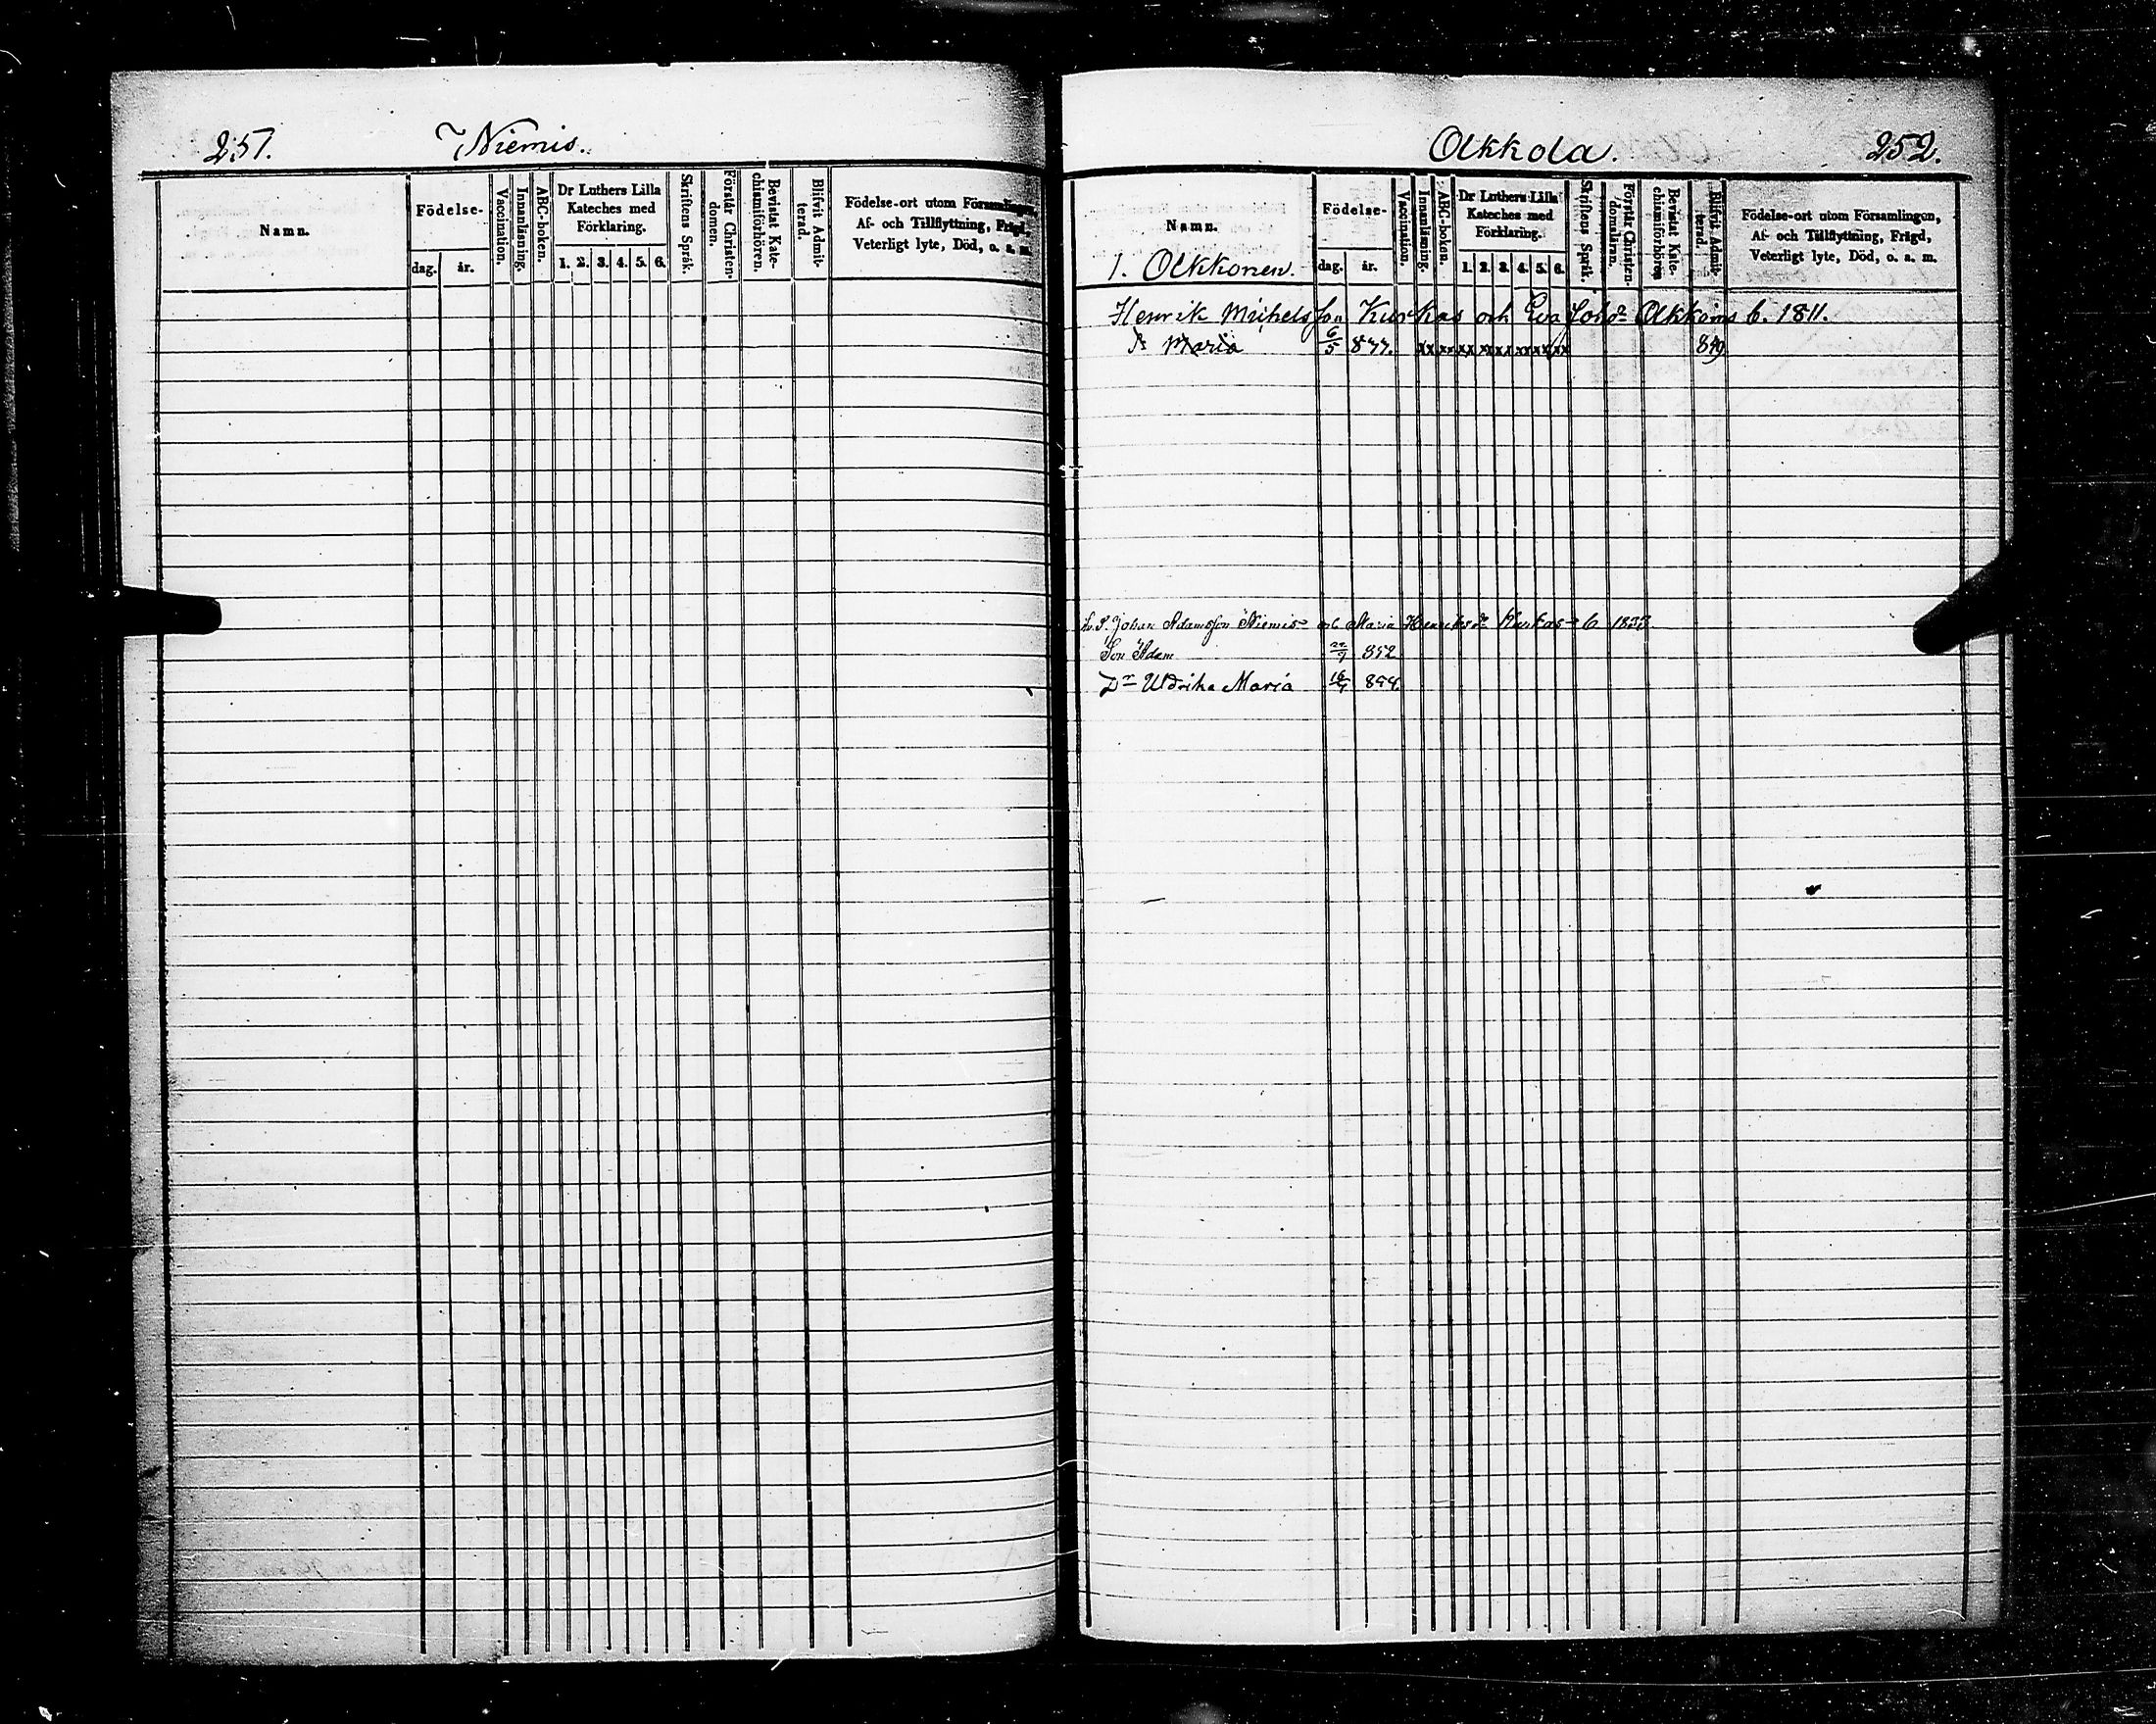 251. Niemis.
Namn.
Födelse-
dag. år.
Vaccination.
Innanläsning.
ABC-boken.
Dr Luthers Lilla
Kateches med
Förklaring.
1. 2. 3. 4. 5. 6.
Skriftens Språk.
Förstår Christen-
domen.
Bevistat Kate-
chismiförhören.
Blifvit Admit-
terad.
Födelse-ort utom Församlingen,
Af- och Tillflyttning, Frägd,
Veterligt lyte, Död, o. a. m.
Olkkola. 252.
Namn.
1. Olkkonen.
Födelse-
dag. år.
Vaccination.
Innanläsning.
ABC-boken.
Dr Luthers Lilla
Kateches med
Förklaring.
1. 2. 3. 4. 5. 6.
Skriftens Språk.
Förstår Christen-
domsläran.
Bevistat Kate-
chismiförhören
Blifvit Admit-
terad.
Födelse-ort utom Församlingen,
Af- och Tillflyttning, Frägd,
Veterligt lyte, Död, o. a. m.
Henrik Michelsson Kurkas och Eva Olkkoins b. 1811.
Maria 6/5 xx xx xx xx xx xx xx xx
Johan Adamsson Niemis och Maria Henriksdr Kurkas
Son Adam 852
Dr Uldrika Maria